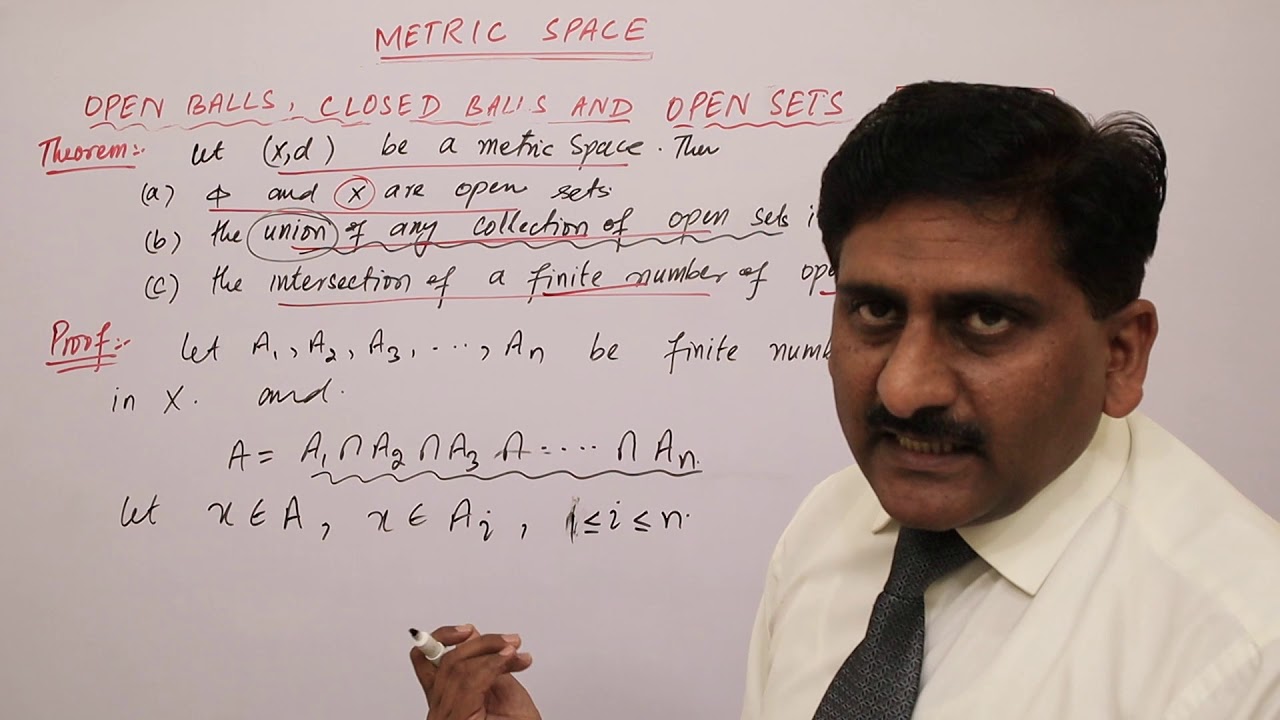 METRIC SPACE
OPEN BALLS, CLOSED BALLS AND OPEN SETS
Theorem:- Let (X,d) be a metric space. Then
(a) Φ and X are open sets.
(b) the union of any collection of open sets i
(c) the intersection of a finite number of ope
Proof:- Let A₁, A₂, A₃, ..., Aₙ be finite numb
in X. and.
A = A₁ ∩ A₂ ∩ A₃ ∩ ... ∩ Aₙ.
Let x ∈ A, x ∈ Aᵢ, 1 ≤ i ≤ n.